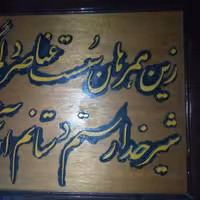 زین همرهان سست عناصر دلم
شیر خدا و رستم دستانم آرزو